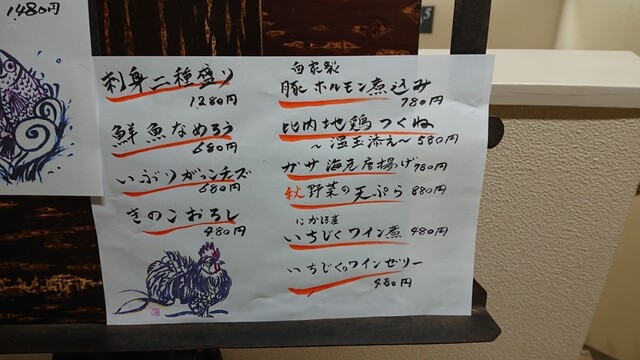 1.480円
刺身二種盛り
1280円
鮮魚なめろう
680円
いぶりがっこチーズ
680円
きのこおろし
480円
自家製
豚ホルモン煮込み
780円
比内地鶏つくね
〜温玉添え〜580円
ガサ海老唐揚げ780円
秋野菜の天ぷら 880円
にかほ産
いちじくワイン煮 480円
いちじくのワインゼリー
480円